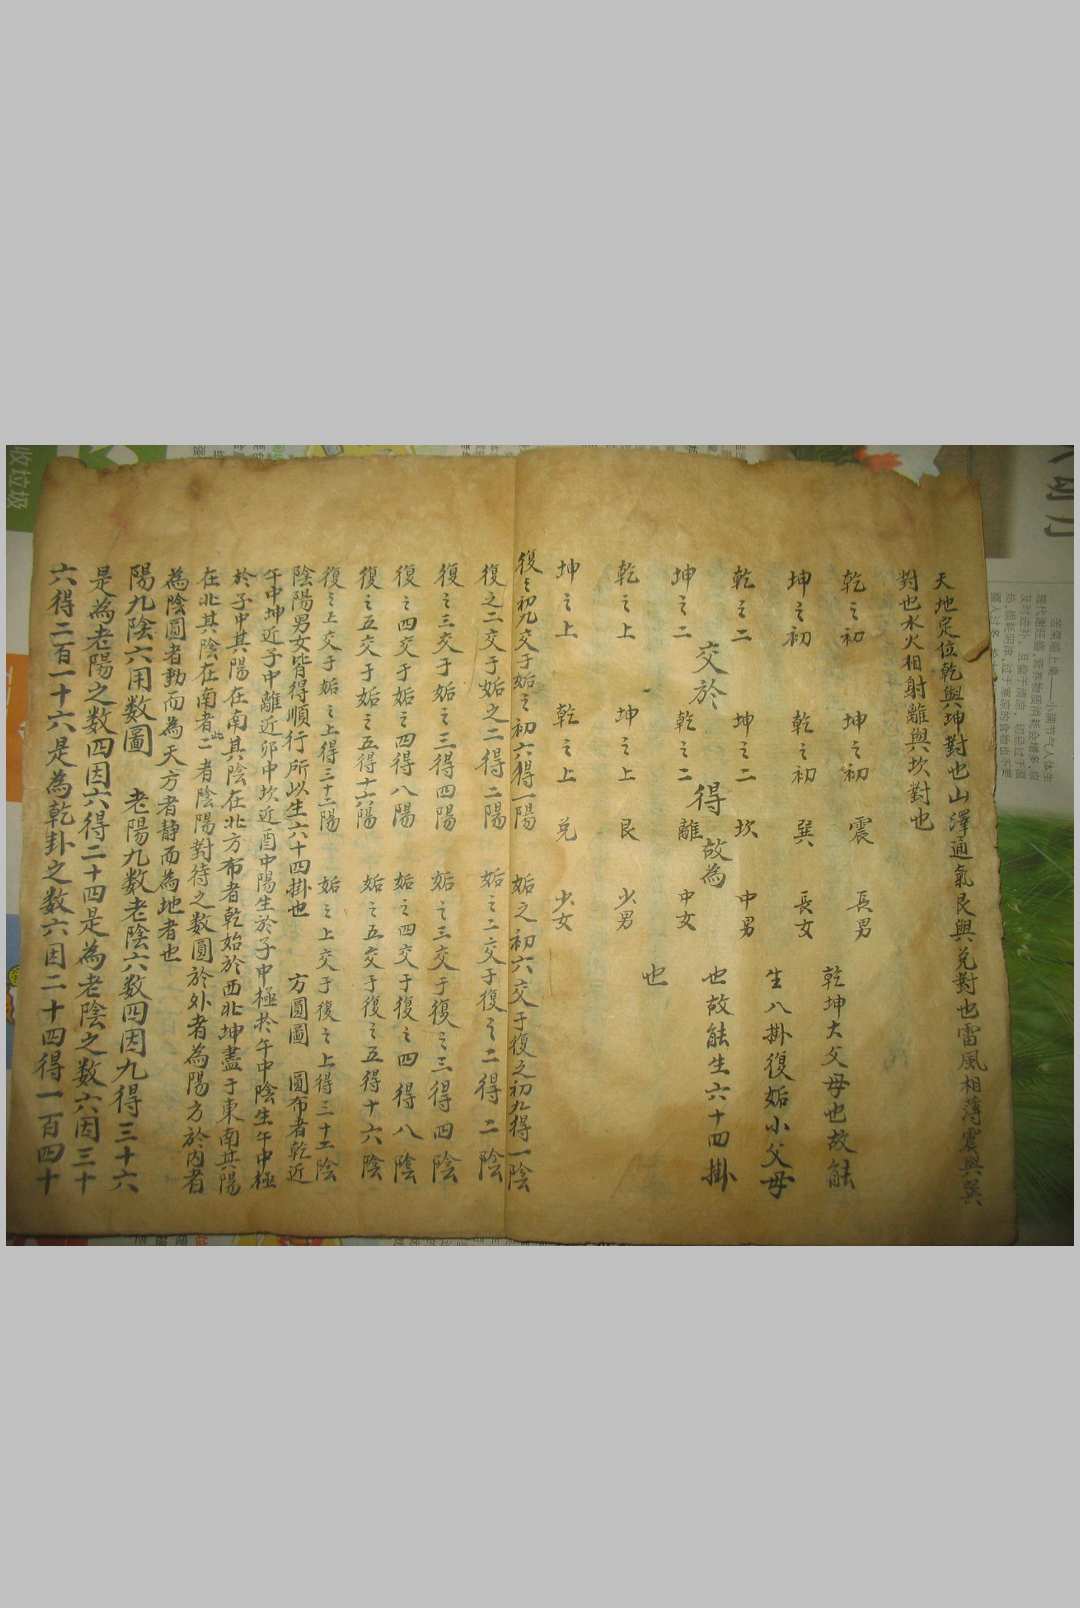 天地定位乾與坤對也山澤通氣艮與兑對也雷風相薄震與巽
對也水火相射離與坎對也
乾之初 坤之初 震 長男 乾坤大父母也故能
坤之初 乾之初 巽 長女 生八掛復姤小父母
乾之二 坤之二 坎 中男 也故能生六十四掛
交於 得 故為
坤之二 乾之二 離 中女 也
乾之上 坤之上 艮 少男
坤之上 乾之上 兑 少女
復之初九交于姤之初六得一陽 姤之初六交于復之初九得一陰
復之二交于姤之二得二陽 姤之二交于復之二得二陰
復之三交于姤之三得四陽 姤之三交于復之三得四陰
復之四交于姤之四得八陽 姤之四交于復之四得八陰
復之五交于姤之五得十六陽 姤之五交于復之五得十六陰
復之上交于姤之上得三十二陽 姤之上交于復之上得三十二陰
陰陽男女皆得順行所以生六十四掛也 方圓圖 圓布者乾近
午中坤近子中離近卯中坎近酉中陽生於子中極於午中陰生午中極
於子中其陽在南其陰在北方布者乾始於西北坤盡于東南其陽
在北其陰在南者此二者陰陽對待之数圓於外者為陽方於内者
為陰圓者動而為天方者静而為地者也
陽九陰六用数圖 老陽九数老陰六数四因九得三十六
是為老陽之数四因六得二十四是為老陰之数六因三十
六得二百一十六是為乾卦之数六因二十四得一百四十
收垃圾